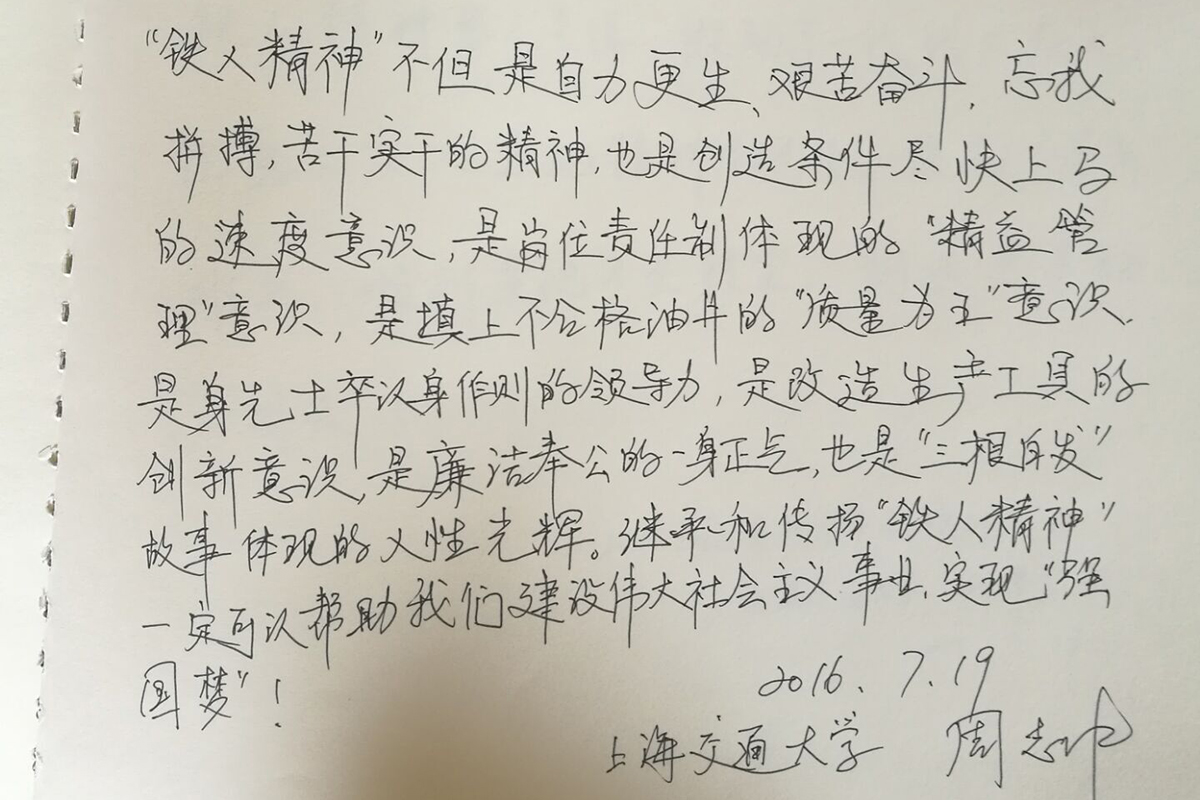 “铁人精神”不但是自力更生、艰苦奋斗，忘我
拼搏，苦干实干的精神，也是创造条件尽快上马
的速度意识，是岗位责任制体现的“精益管
理”意识，是填上不合格油井的“质量为王”意识，
是身先士卒以身作则的领导力，是改造生产工具的
创新意识，是廉洁奉公的一身正气，也是“三根白发”
故事体现的人性光辉。继承和传扬“铁人精神”
一定可以帮助我们建设伟大社会主义事业，实现“强
国梦”！
2016.7.19
上海交通大学 周志